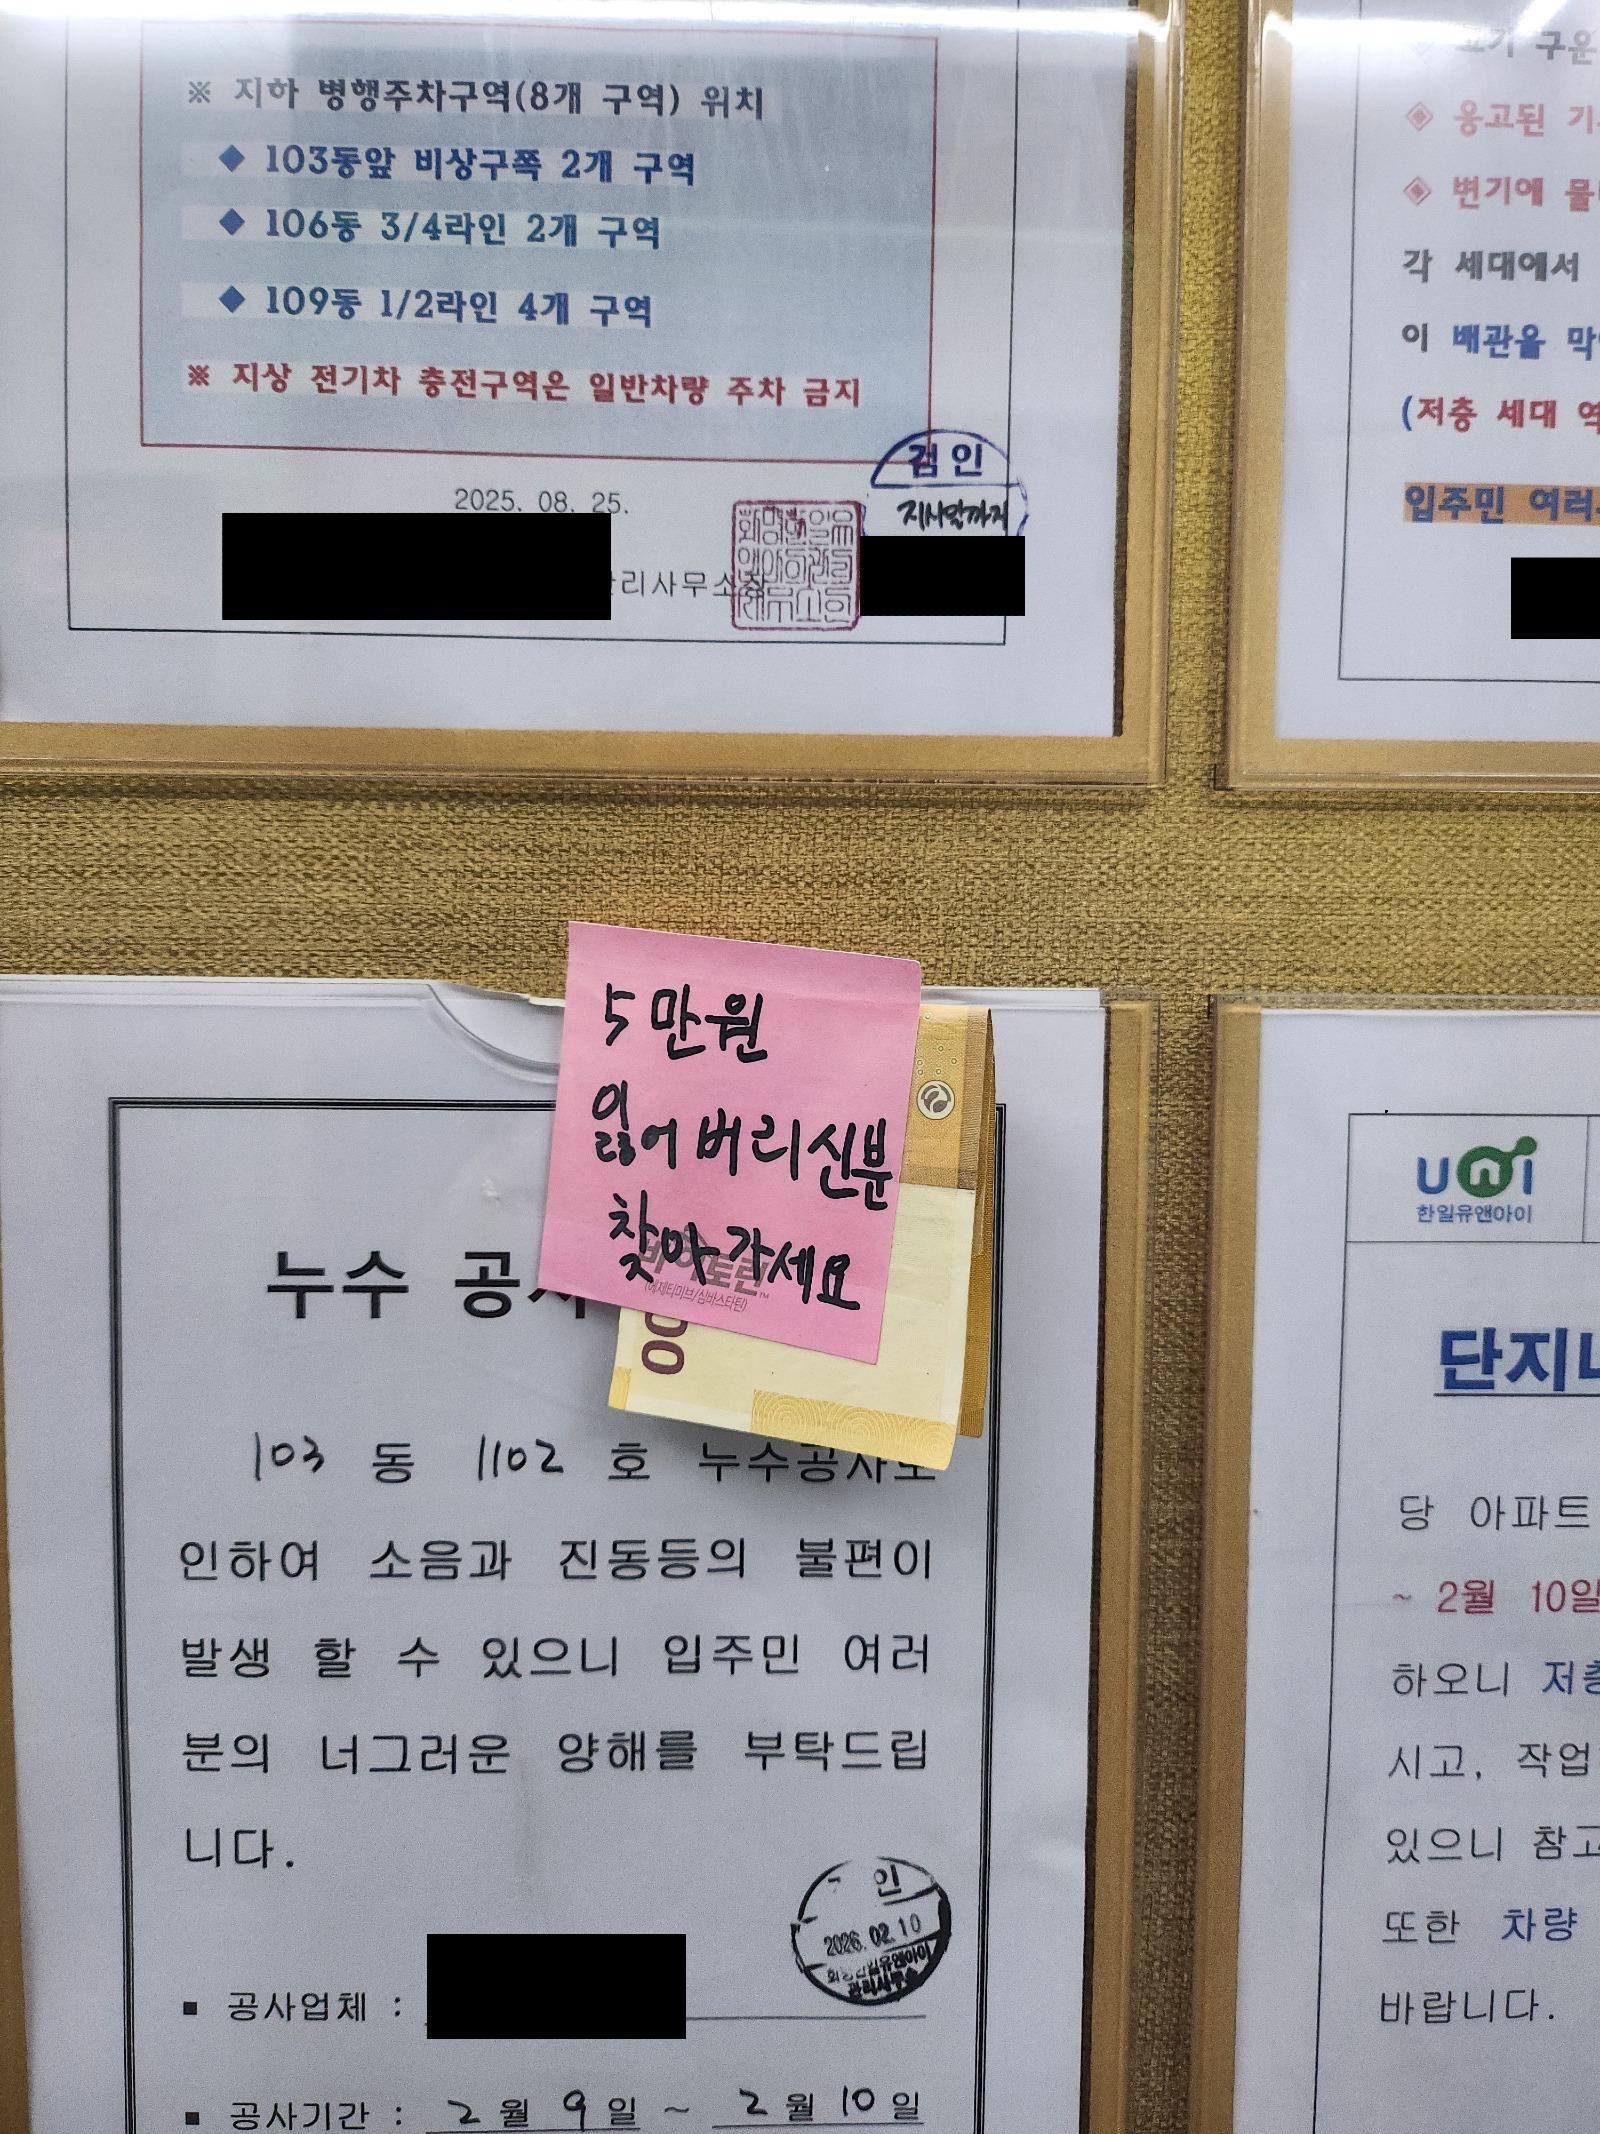 ※ 지하 병행주차구역(8개 구역) 위치
◆ 103동앞 비상구쪽 2개 구역
◆ 106동 3/4라인 2개 구역
◆ 109동 1/2라인 4개 구역
※ 지상 전기차 충전구역은 일반차량 주차 금지
2025. 08. 25.
리사무소장
검인
지시말까지
구운
◈ 응고된
◈ 변기에
각 세대에서
이 배관을
(저층 세대
입주민
5만원
잃어버리신분
찾아가세요
바이토린™
(에제티미브/심바스타틴)
누수 공사
103 동 1102 호 누수공사로
인하여 소음과 진동등의 불편이
발생 할 수 있으니 입주민 여러
분의 너그러운 양해를 부탁드립
니다.
인
2026. 02. 10
관리사무소
▪ 공사업체 :
▪ 공사기간 : 2 월 9 일 ~ 2 월 10 일
UNI
한일유앤아이
당 아파트
~ 2월 10일
하오니
시고, 작업
있으니
또한 차량
바랍니다.